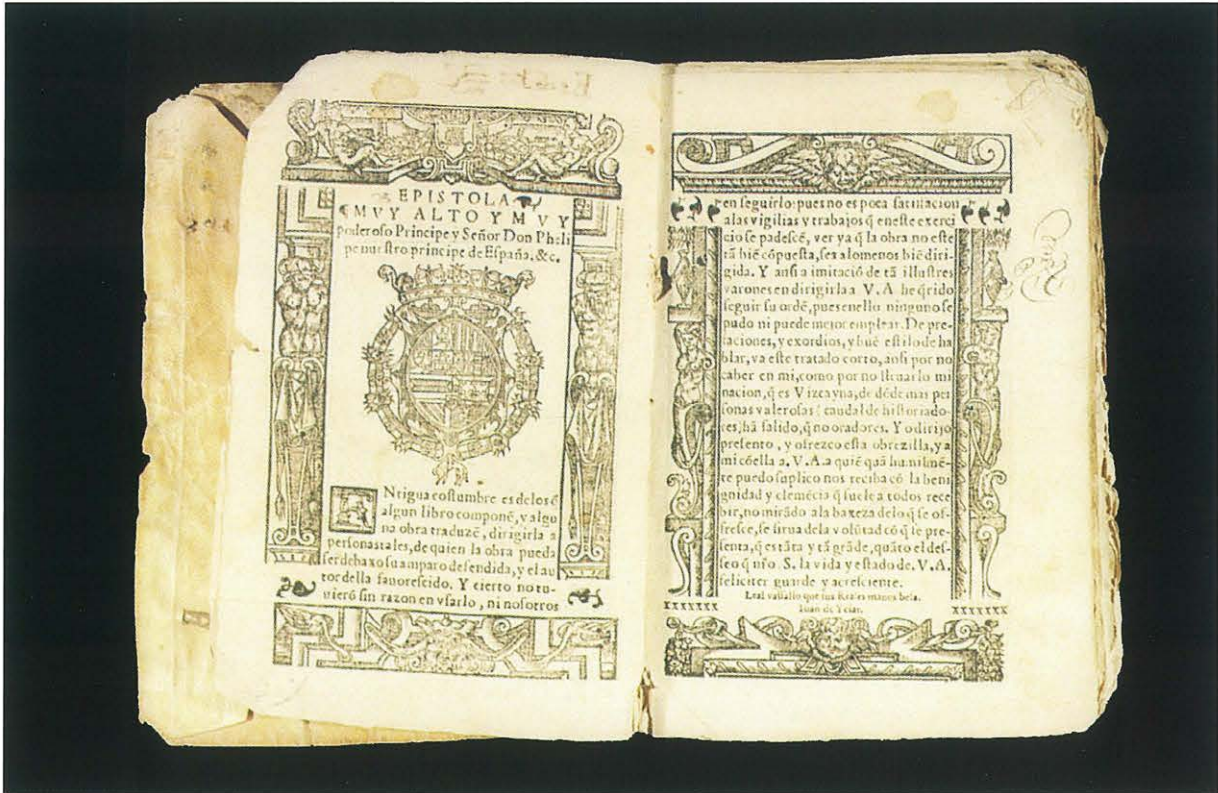 EPISTOLA
MVY ALTO Y MVY
poderoso Principe y Señor Don Phili
pe nuestro principe de España. &c.
ANtigua costumbre es delos q̃
algun libro componẽ, y algu
na obra traduzẽ, dirigirla a
personas tales, de quien la obra pueda
ser debaxo su amparo defendida, y el au
tor della fauorescido. Y cierto no tu-
uierõ sin razon en vsarlo, ni nosotros
en seguirlo: pues no es poca satisfacion
a las vigilias y trabajos q̃ en este exerci
cio se padescẽ, ver ya q̃ la obra no este
tã biẽ cõpuesta, sea alomenos biẽ diri-
gida. Y ansi a imitaciõ de tã illustres
varones en dirigirla a V.A he q̃rido
seguir su ordẽ, pues en ello ninguno se
pudo ni puede mejor emplear. De pre-
faciones, y exordios, y buẽ estilo de ha
blar, va este tratado corto, ansi por no
caber en mi, como por no lleuarlo mi
nacion, q̃ es Vizcayna, de dõde mas per
sonas valerosas: caudal de historiado-
res, hã salido, q̃ no oradores. Yo dirijo
presento, y ofrezco esta obrezilla, y a
mi cõella a. V.A. a quiẽ quã humilmẽ-
te puedo suplico nos reciba cõ la beni
gnidad y clemẽcia q̃ suele a todos rece
bir, no mirãdo a la baxeza delo q̃ se of-
fresce, se sirua dela volũtad cõ q̃ le pre-
senta, q̃ es tãta y tã grãde, quãto el des-
seo q̃ nr̃o. S. la vida y estado de. V.A.
feliciter guarde y acresciente.
Leal vassallo que sus Reales manos besa.
Iuan de Yciar.